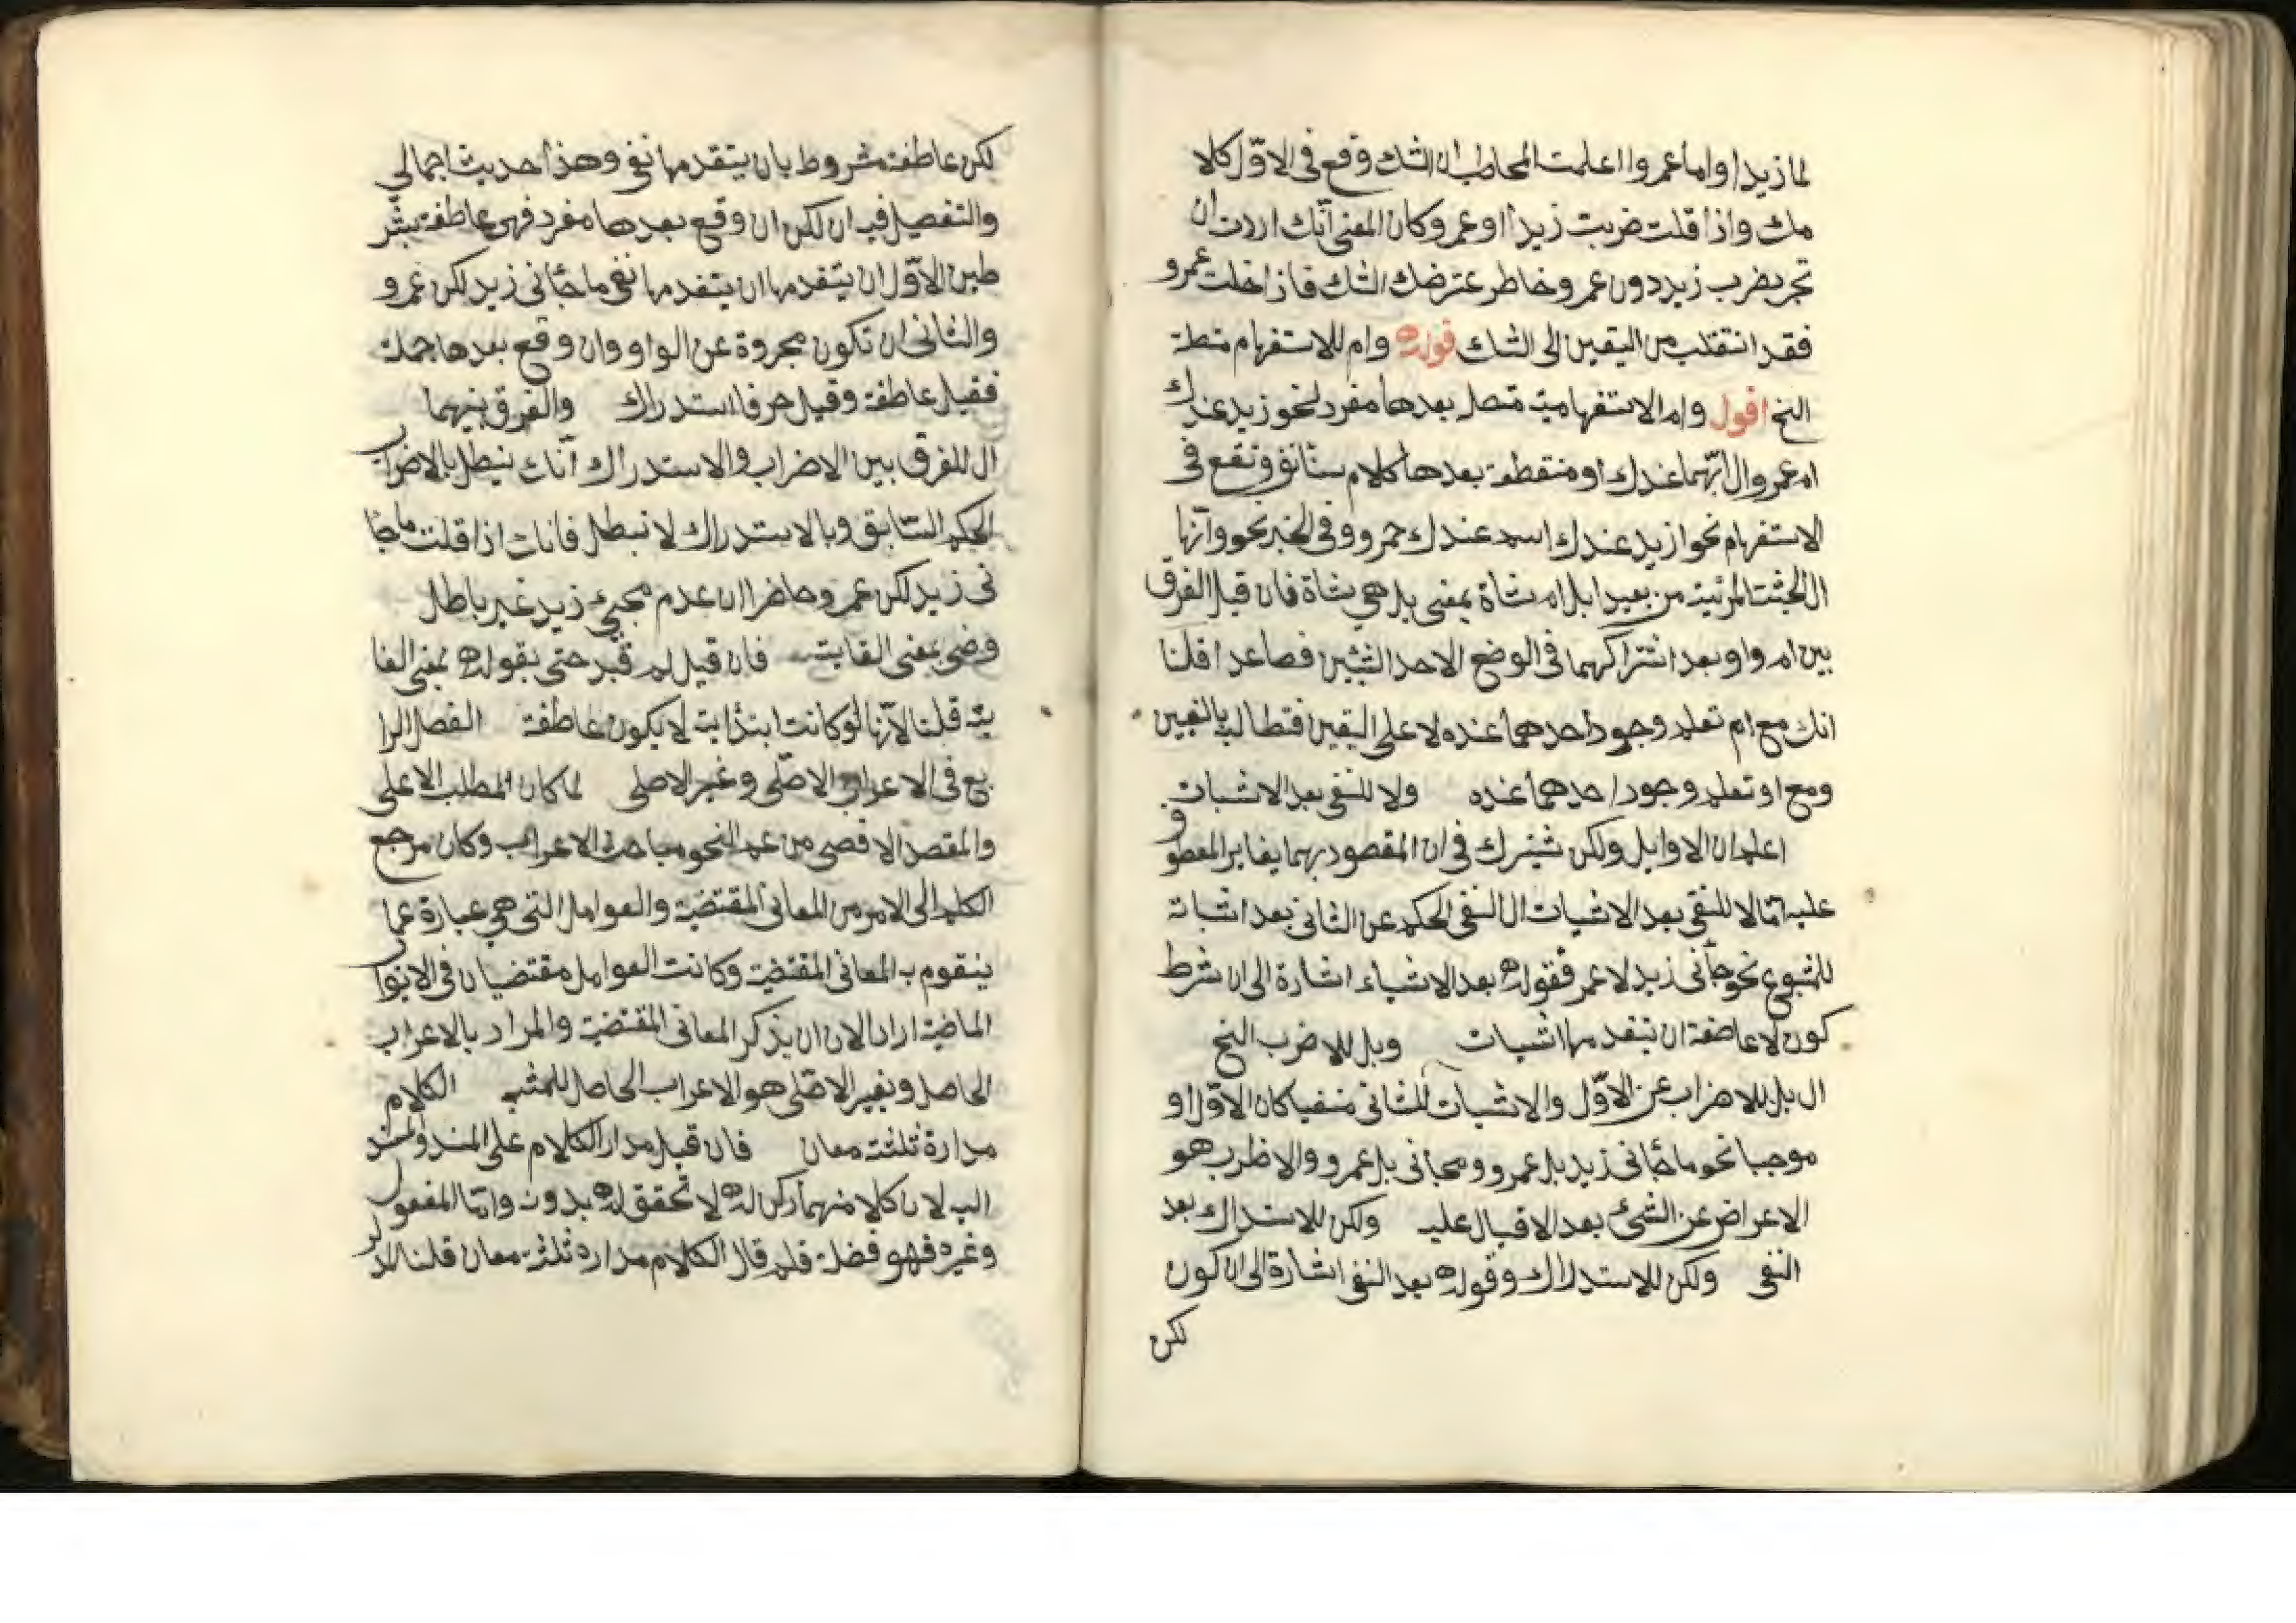 لما زيدا واما عمروا اعلمت المخاطب ان الشك وقع في الاوّل كلا
مك واذا قلت ضربت زيدا او عمرو كان المعنى انّك اردت ان
تجر بضرب زيد دون عمرو خاطر عترضك الشك فاذا خلت عمرو
فقد انتقلب من اليقين الى الشك قوله وام للاستفهام متطة
الخ اقول وام الاستفهامية متصل بعدها مفرد نحو زيد عندك
ام عمرو ال ايّهما عندك او منقطعة بعدها كلام ستانف وتقع في
الاستفهام نحو ازيد عندك اسد عندك حمرو وفي الخبر نحو وانّها
ال الجثت المرئية من بعيد ابل ام شاة بمعنى بل هي شاة فان قيل الفرق
بين ام واو بعد اشتراكهما في الوضع الاحد الشيئين فصاعدا قلنا
انك مع ام تعلم وجود احدهما عنده لا على اليقين فتطالب بالتعين
ومع او تعلم وجود احدهما عنده ولا للنفى بعد الاشبات
اعلم ان الاوايل ولكن شيترك في ان المقصود بهما يغاير المعطو
ف
عليه امّا لا للنفي بعد الاشيات ال النفى الحكم عن الثاني بعد اشباته
للمتبوع نحو جأنى زيد لا عمر فقوله بعد الاشياء اشارة الى ان شرط
كون لا عاطفة ان يتقدمها اشبات وبل للاضرب الخ
ال بل للاضراب عن الاوّل والاشبات للثانى منفيا كان الاوّل او
موجبا نحو ما جأنى زيد بل عمرو ومجانى بل عمرو والاظرب هو
الاعراض عن الشئ بعد الاقبال عليه ولكن للاستدراك بعد
النفى ولكن للاستدلاك وقوله بعد النفى اشارة الى ان كون
لكن
لكن عاطفة مشروط بان يتقدمها نفى وهذا حديث اجمالي
والتفصيل فيه ان لكن ان وقع بعدها مفرد فهى عاطفة بشر
طين الاوّل ان يتقدمها ان يتقدمها نفى ما جأنى زيد لكن عمرو
والثانى ان تكون مجروة عن الواو وان وقع بعدها جملة
فقيل عاطفة وقيل حرف استدراك والفرق بينهما
ال للفرق بين الاضراب والاستدراك انّك تبطل بالاضراب
الحكم السّابق وبالاستدراك لا تبطل فانك اذا قلت ما جا
نى زيد لكن عمرو حاضرا ان عدم مجيئ زيد غير باطل
وضى بمعنى القابت فان قيل لم قيد حتى بقوله بمعنى الغا
ية قلنا لانّها لو كانت ابتذاية لا يكون عاطفة الفصل الرا
بع في الاعراب الاصلّى وغير الاصلى لما كان المطلب الاعلى
والمقصد الاقصى من علم النحو مباحث الاعراب وكان مرجع
الكلم الى الامر من المعاني المقتضية والعوامل التى هي عبارة عما
يتقوم به المعانى المقتضية وكانت العوامل مقتضيان في الابوا
ب
الماضية اراد الان ان يذكر المعانى المقتضية والمراد بالاعراب
الحاصل وبغير الاصّلى هو الاعراب الحاصل للمشبه الكلام
مدارة ثلثة معان فان قيل مدار الكلام على المسند والمسند
اليه لان كلا منهما ركن له لا تحقق له بدون وامّا المفعول
وغيره فهو فضلة فلم قال الكلام مداره ثلثة معان قلنا المد